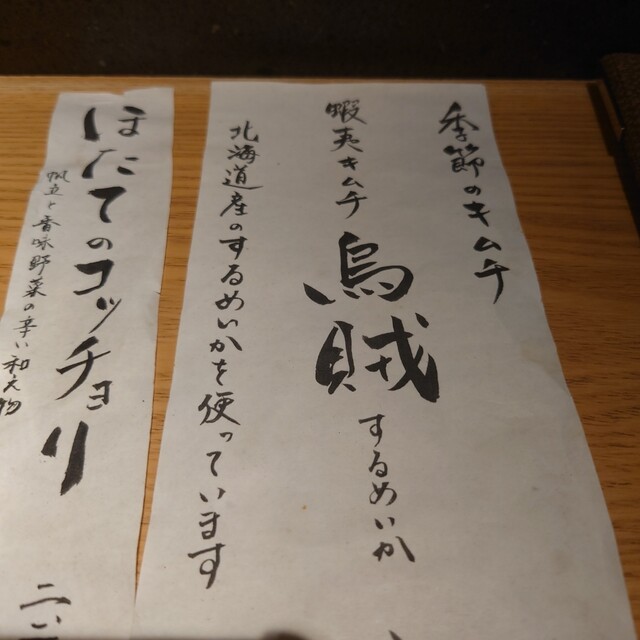 季節のキムチ
蝦夷キムチ 烏賊 するめいか
北海道産のするめいかを使っています
ほたてのコッチョリ
帆立と香味野菜の辛い和え物